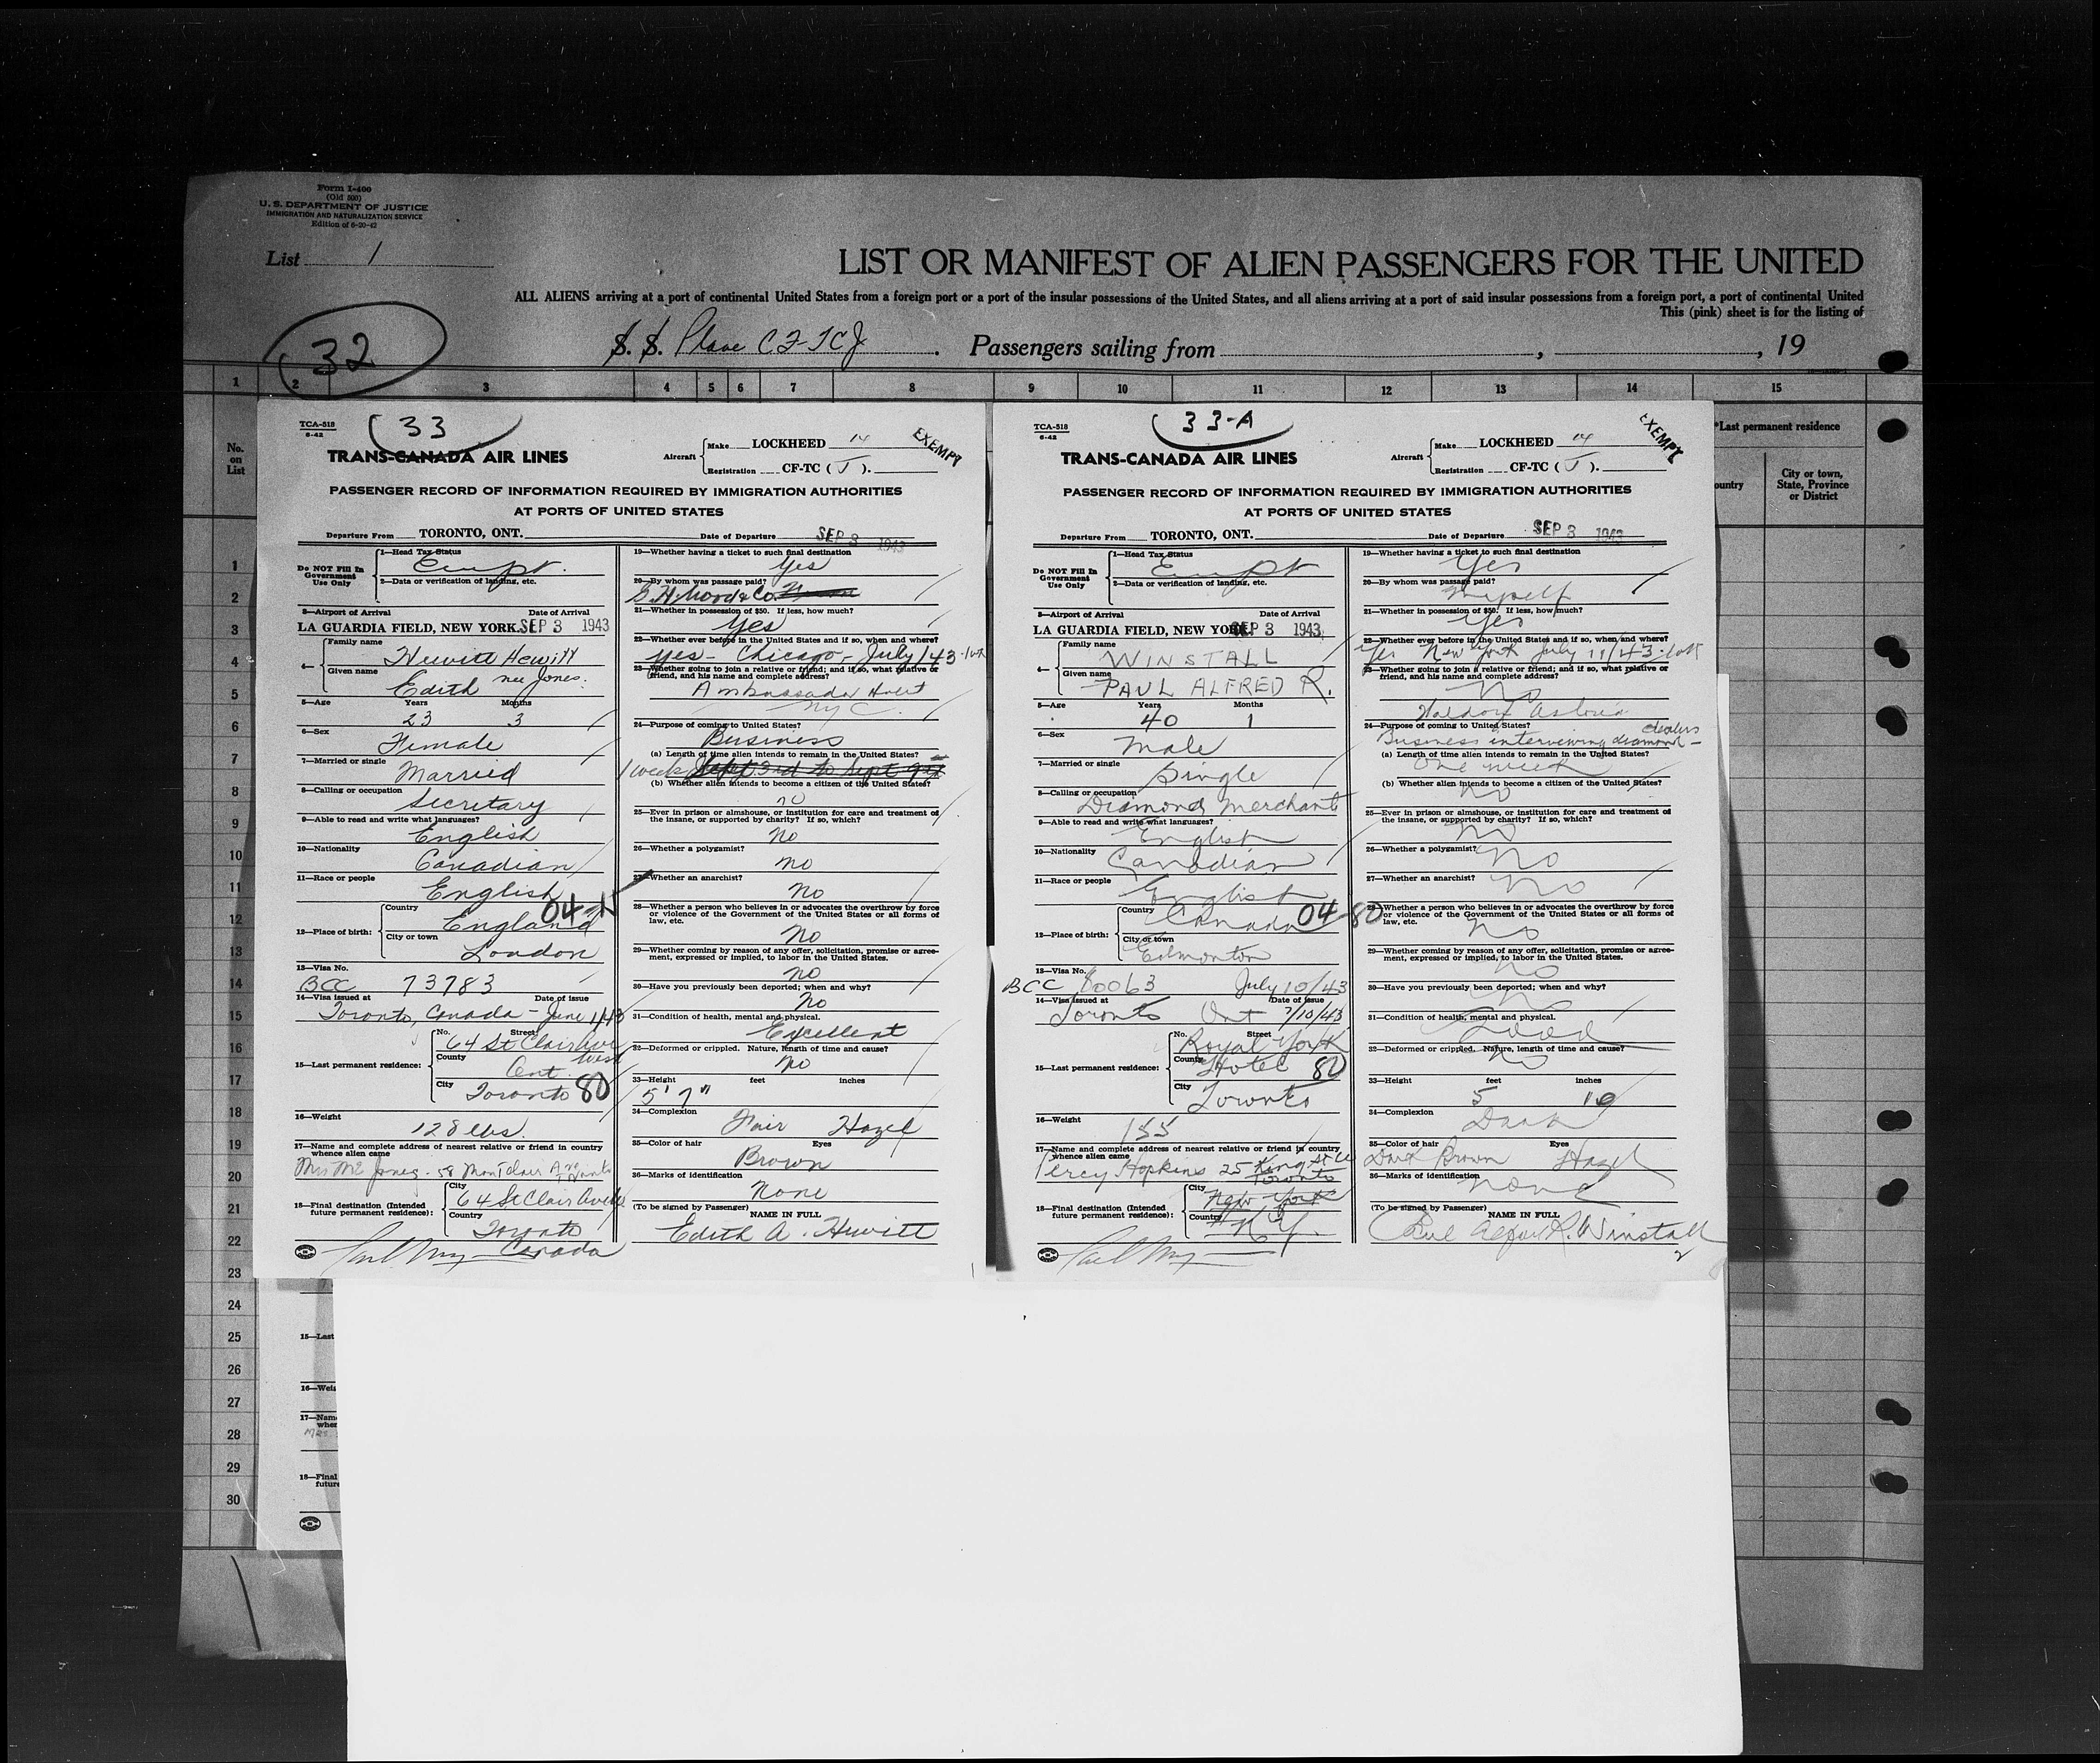 Form I-400
(Old 500)
U. S. DEPARTMENT OF JUSTICE
IMMIGRATION AND NATURALIZATION SERVICE
Edition of 6-20-42
List 1
LIST OR MANIFEST OF ALIEN PASSENGERS FOR THE UNITED
ALL ALIENS arriving at a port of continental United States from a foreign port or a port of the insular possessions of the United States, and all aliens arriving at a port of said insular possessions from a foreign port, a port of continental United
This (pink) sheet is for the listing of
32
S. S. Plane CF-TCJ. Passengers sailing from , , 19
1 2 3 4 5 6 7 8 9 10 11 12 13 14 15
No. on List
*Last permanent residence
ountry
City or town, State, Province or District
1
2
3
4
5
6
7
8
9
10
11
12
13
14
15
16
17
18
19
20
21
22
23
24
25
26
27
28
29
30
TCA-518
6-42
33
TRANS-CANADA AIR LINES
Aircraft
Make LOCKHEED 14
Registration CF-TC (J).
EXEMPT
PASSENGER RECORD OF INFORMATION REQUIRED BY IMMIGRATION AUTHORITIES
AT PORTS OF UNITED STATES
Departure From TORONTO, ONT. Date of Departure SEP 3 1943
Do NOT Fill In Government Use Only
1—Head Tax Status
Exempt.
2—Data or verification of landing, etc.
3—Airport of Arrival Date of Arrival
LA GUARDIA FIELD, NEW YORK. SEP 3 1943
4—
Family name
Hewitt Hewitt
Given name
Edith nee Jones.
5—Age Years Months
23 3
6—Sex
Female
7—Married or single
Married
8—Calling or occupation
Secretary
9—Able to read and write what languages?
English
10—Nationality
Canadian
11—Race or people
English
04-N
12—Place of birth:
Country
England
City or town
London
13—Visa No.
BCC 73783
14—Visa issued at Date of issue
Toronto, Canada - June 1/43
15—Last permanent residence:
No. Street
64 St Clair Ave West
County
Ont.
City
Toronto 80
16—Weight
128 lbs.
17—Name and complete address of nearest relative or friend in country whence alien came
Mrs Jones - 58 Montclair Ave Toronto
18—Final destination (Intended future permanent residence):
City
64 St Clair Ave W
Country
Toronto
Canada
19—Whether having a ticket to such final destination
Yes
20—By whom was passage paid?
G. H. Wood & Co.
21—Whether in possession of $50. If less, how much?
Yes
22—Whether ever before in the United States and if so, when and where?
yes - Chicago - July/43 - 1wk
23—Whether going to join a relative or friend; and if so, what relative or friend, and his name and complete address?
Ambassador Hotel
NYC.
24—Purpose of coming to United States?
Business
(a) Length of time alien intends to remain in the United States?
1 week Sept 3rd to Sept 9th
(b) Whether alien intends to become a citizen of the United States?
no
25—Ever in prison or almshouse, or institution for care and treatment of the insane, or supported by charity? If so, which?
No
26—Whether a polygamist?
No
27—Whether an anarchist?
No
28—Whether a person who believes in or advocates the overthrow by force or violence of the Government of the United States or all forms of law, etc.
No
29—Whether coming by reason of any offer, solicitation, promise or agreement, expressed or implied, to labor in the United States.
No
30—Have you previously been deported; when and why?
No
31—Condition of health, mental and physical.
Excellent
32—Deformed or crippled. Nature, length of time and cause?
No
33—Height feet inches
5' 7"
34—Complexion
Fair Hazel
35—Color of hair Eyes
Brown
36—Marks of identification
None
(To be signed by Passenger) NAME IN FULL
Edith A. Hewitt
TCA-518
6-42
33-A
TRANS-CANADA AIR LINES
Aircraft
Make LOCKHEED 14
Registration CF-TC (J).
EXEMPT
PASSENGER RECORD OF INFORMATION REQUIRED BY IMMIGRATION AUTHORITIES
AT PORTS OF UNITED STATES
Departure From TORONTO, ONT. Date of Departure SEP 3 1943
Do NOT Fill In Government Use Only
1—Head Tax Status
Exempt
2—Data or verification of landing, etc.
3—Airport of Arrival Date of Arrival
LA GUARDIA FIELD, NEW YORK. SEP 3 1943
4—
Family name
WINSTALL
Given name
PAUL ALFRED R.
5—Age Years Months
40 1
6—Sex
Male
7—Married or single
Single
8—Calling or occupation
Diamond Merchant
9—Able to read and write what languages?
English
10—Nationality
Canadian
11—Race or people
English
04-80
12—Place of birth:
Country
Canada
City or town
Edmonton
13—Visa No.
BCC 80063 July 10/43
14—Visa issued at Date of issue
Toronto Ont 7/10/43
15—Last permanent residence:
No. Street
Royal York
County
Hotel 80
City
Toronto
16—Weight
155
17—Name and complete address of nearest relative or friend in country whence alien came
Percy Hopkins 25 King St W
Toronto
18—Final destination (Intended future permanent residence):
City
New York
Country
N.Y.
19—Whether having a ticket to such final destination
Yes
20—By whom was passage paid?
Myself
21—Whether in possession of $50. If less, how much?
Yes
22—Whether ever before in the United States and if so, when and where?
Yes New York July 11/43
23—Whether going to join a relative or friend; and if so, what relative or friend, and his name and complete address?
No
Waldorf Astoria
24—Purpose of coming to United States?
Business interviewing diamond dealers
(a) Length of time alien intends to remain in the United States?
One week
(b) Whether alien intends to become a citizen of the United States?
No
25—Ever in prison or almshouse, or institution for care and treatment of the insane, or supported by charity? If so, which?
No
26—Whether a polygamist?
No
27—Whether an anarchist?
No
28—Whether a person who believes in or advocates the overthrow by force or violence of the Government of the United States or all forms of law, etc.
No
29—Whether coming by reason of any offer, solicitation, promise or agreement, expressed or implied, to labor in the United States.
No
30—Have you previously been deported; when and why?
No
31—Condition of health, mental and physical.
Good
32—Deformed or crippled. Nature, length of time and cause?
No
33—Height feet inches
5 10
34—Complexion
Dark
35—Color of hair Eyes
Dark Brown Hazel
36—Marks of identification
None
(To be signed by Passenger) NAME IN FULL
Paul Alfred R. Winstall
2
15—Last
16—Wei
17—Nam
when
Mrs
18—Final
future